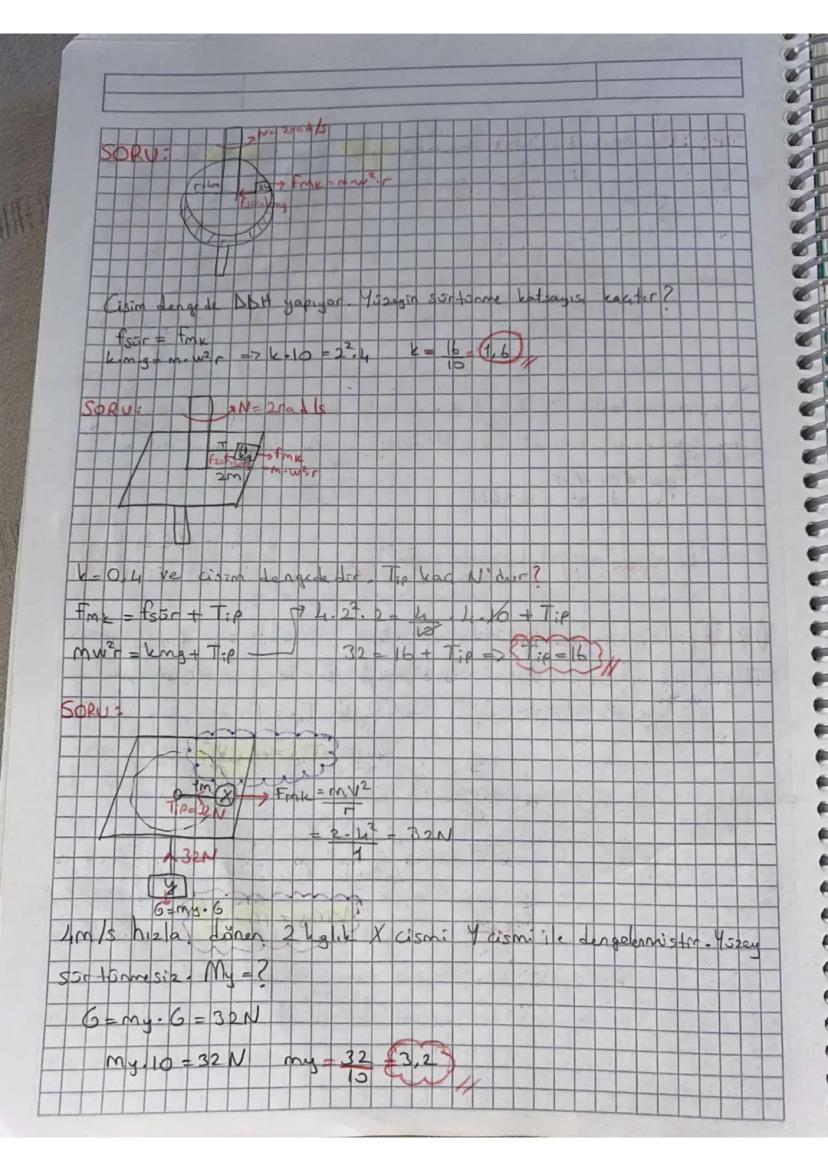 SORU:
N=2rad/s
Fmk=m.w².r
Cisim dengede DDH yapıyor. Yüzeyin sürtünme katsayısı kaçtır?
fsür = fmk
k.m.g = m.w²r => k.10 = 2².4 k = 16/10 = 1,6
SORU:
N=2rad/s
T
kg
fmk
=m.w²r
2m
k=0,4 ve cisim dengededir. Tip kaç N'dur?
Fmk = fsür + Tip 4.2².2 = 4/10 . 4.10 + Tip
mw²r = kmg + Tip 32 = 16 + Tip => Tip = 16
SORU:
1m X Fmk = mV²/r
Tip=32N
= 2.4²/1 = 32N
32N
y
G=my.G
4m/s hızla dönen 2 kglık X cismi Y cismi ile dengelenmiştir. Yüzey
sürtünmesiz. My=?
G=my.G = 32N
my.10 = 32N my = 32/10 = 3,2